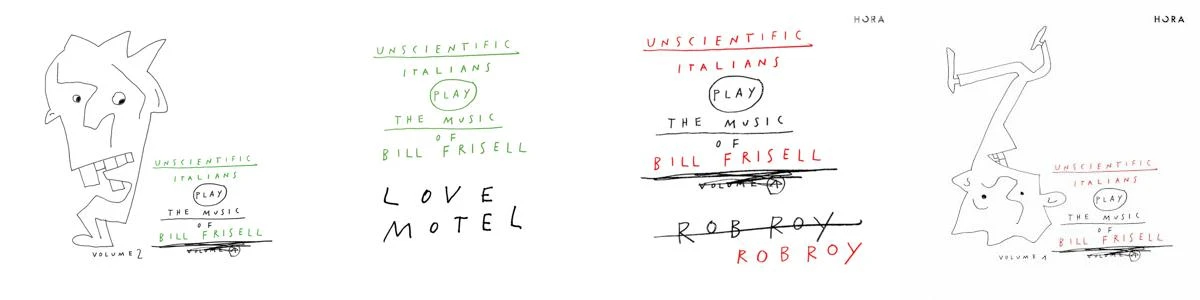 UNSCIENTIFIC
ITALIANS
PLAY
THE MUSIC
OF
BILL FRISELL
VOLUME 2
UNSCIENTIFIC
ITALIANS
PLAY
THE MUSIC
OF
BILL FRISELL
LOVE
MOTEL
HORA
UNSCIENTIFIC
ITALIANS
PLAY
THE MUSIC
OF
BILL FRISELL
VOLUME 1
ROB ROY
ROB ROY
HORA
UNSCIENTIFIC
ITALIANS
PLAY
THE MUSIC
OF
BILL FRISELL
VOLUME 1